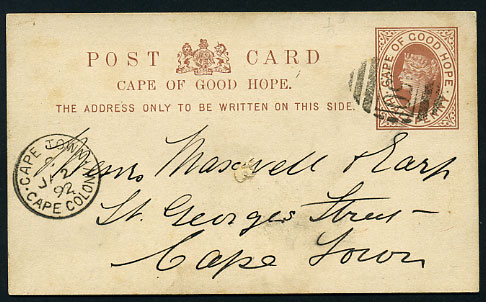 POST CARD
CAPE OF GOOD HOPE.
THE ADDRESS ONLY TO BE WRITTEN ON THIS SIDE.
CAPE OF GOOD HOPE
CAPE TOWN
92
CAPE COLONY
Messrs Maxwell & Earp
St. Georges Street
Cape Town